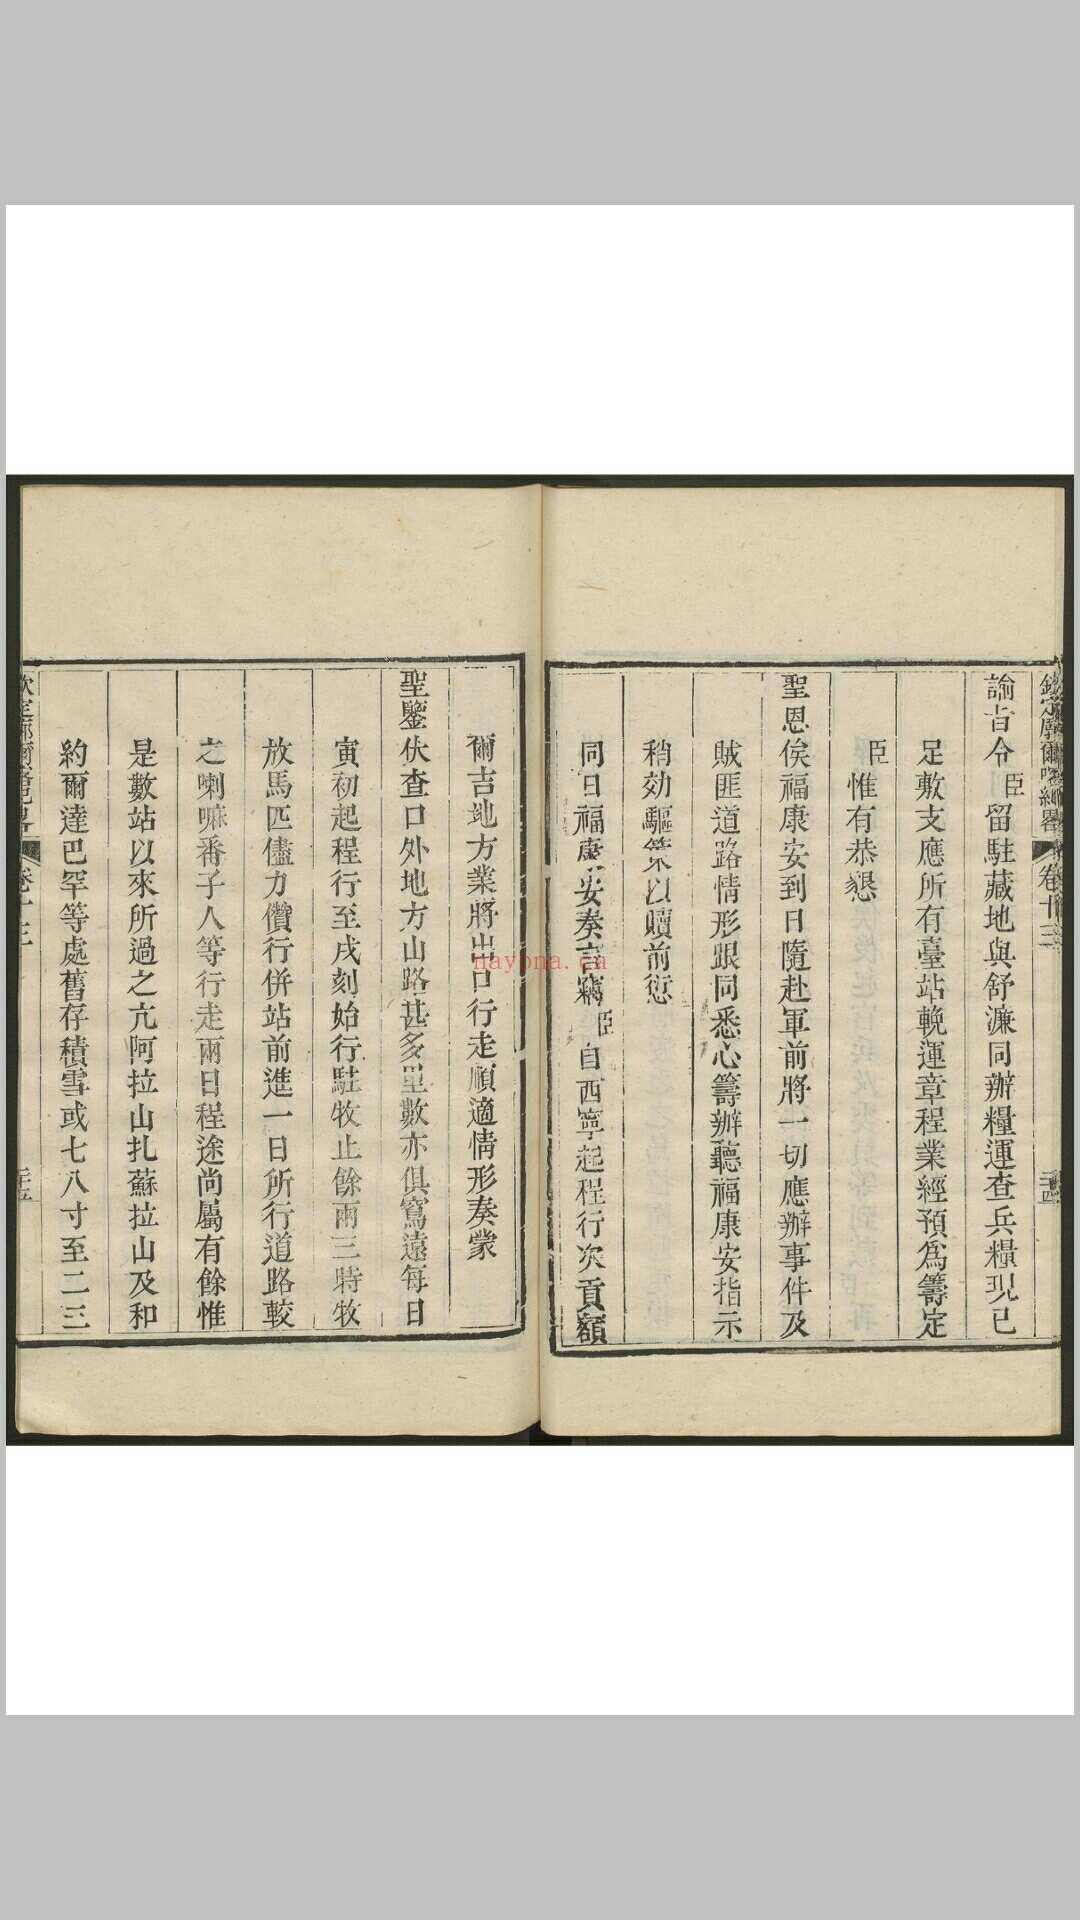 欽定廓爾喀紀畧 卷十三 三十四
諭旨令臣留駐藏地與舒濂同辦糧運查兵糧現已
足敷支應所有臺站輓運章程業經預爲籌定
臣惟有恭懇
聖恩俟福康安到日隨赴軍前將一切應辦事件及
賊匪道路情形跟同悉心籌辦聽福康安指示
稍効驅策以贖前愆
同日福康安奏言竊臣自西寧起程行次貢額
爾吉地方業將出口行走順適情形奏蒙
聖鑒伏查口外地方山路甚多里數亦俱窵遠每日
寅初起程行至戌刻始行駐牧止餘兩三時牧
放馬匹儘力儧行併站前進一日所行道路較
之喇嘛番子人等行走兩日程途尚屬有餘惟
是數站以來所過之亢阿拉山扎蘇拉山及和
約爾達巴罕等處舊存積雪或七八寸至二三
卷十三 三十五
nayona.cn